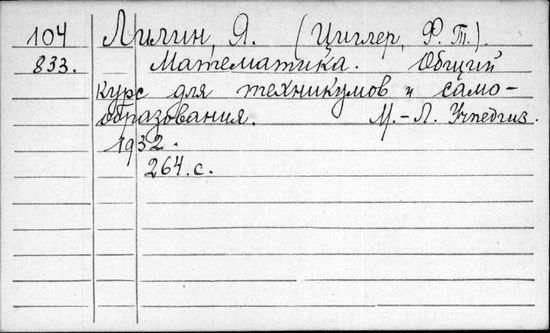 104 Лилин, Я. (Циглер, Ф. Т.).
833. Математика. Общий
курс для техникумов и само-
образования. М.-Л. Учпедгиз.
1932.
264.с.